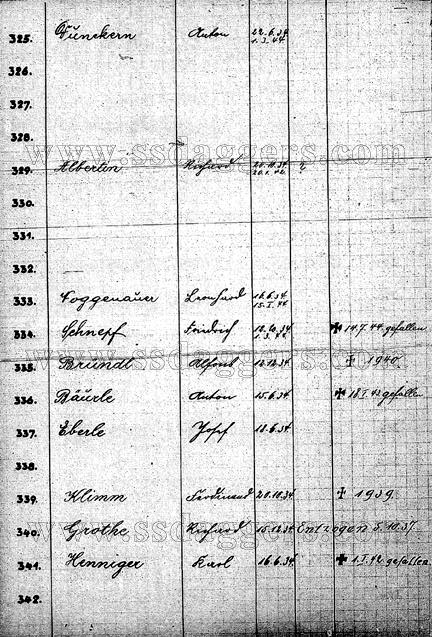 325. Dünckern Anton 22.6.34
1.3.44
326.
327.
328.
www.ssdaggers.com
329. Albertin Richard 20.10.34
330.
331.
332.
333. Leonhard 16.6.34
334. Schnepf Friedrich 10.10.34 ✠ 14.7.44 gefallen
1.3.42
www.ssdaggers.com
335. Brundt Alfons 12.12.34 ✝ 1940
336. Bäurle Anton 15.6.34 ✠ 18.I.43 gefallen
337. Eberle Josef 18.6.34
338.
339. Klimm Ferdinand 20.10.34 ✝ 1939
www.ssdaggers.com
340. Grothe Richard 15.12.34 Entzogen 5.10.37.
341. Henniger Karl 16.6.34 ✠ 1.I.42 gefallen
342.